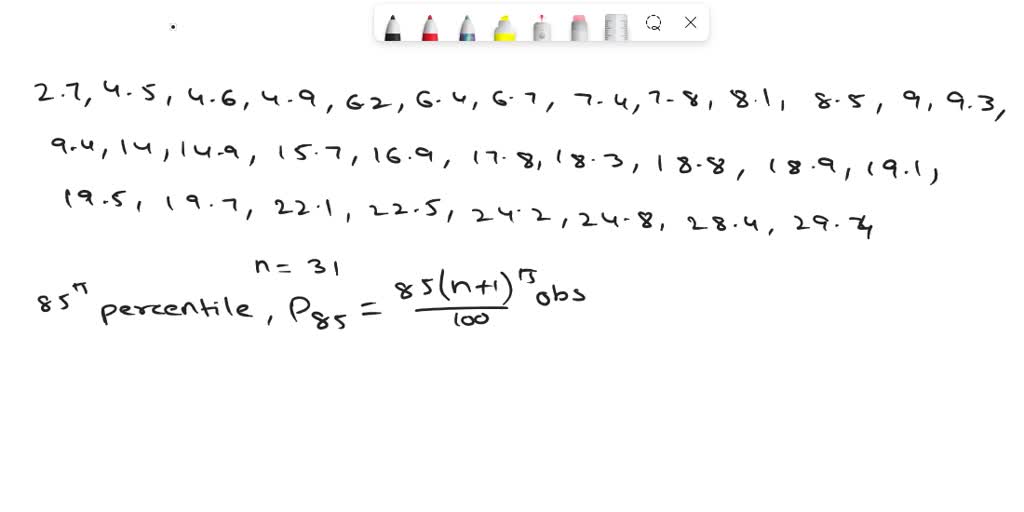 2.7, 4.5, 4.6, 4.9, 62, 6.4, 6.7, 7.4, 7-8, 8.1, 8.5, 9, 9.3,
9.4, 14, 14.9, 15.7, 16.9, 17.8, 18.3, 18.8, 18.9, 19.1,
19.5, 19.7, 22.1, 22.5, 24.2, 24.8, 28.4, 29.
n = 31
85th percentile, P85 = 85(n+1)/100 th obs